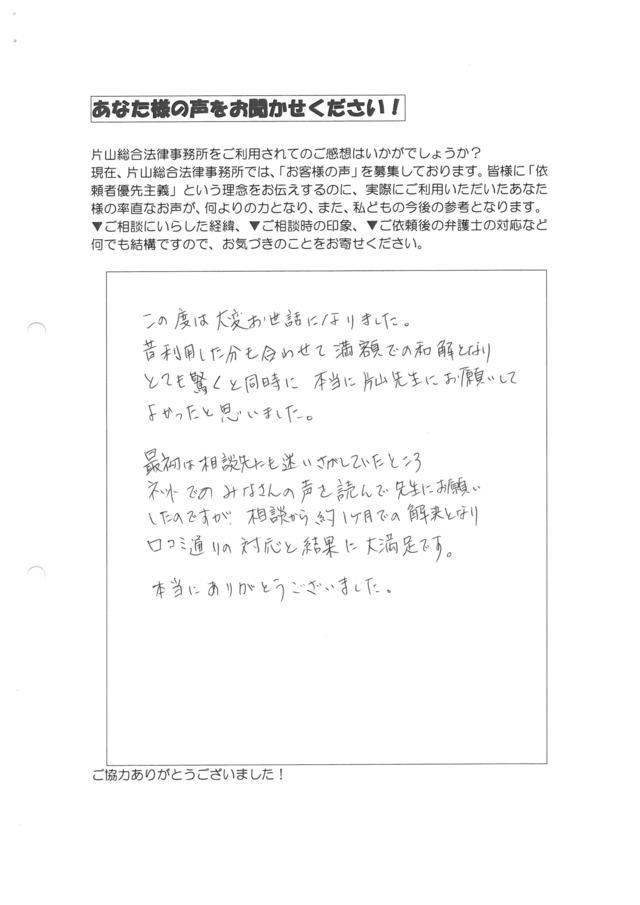 あなた様の声をお聞かせください！
片山総合法律事務所をご利用されてのご感想はいかがでしょうか？
現在、片山総合法律事務所では、「お客様の声」を募集しております。皆様に「依
頼者優先主義」という理念をお伝えするのに、実際にご利用いただいたあなた
様の率直なお声が、何よりの力となり、また、私どもの今後の参考となります。
▼ご相談にいらした経緯、▼ご相談時の印象、▼ご依頼後の弁護士の対応など
何でも結構ですので、お気づきのことをお寄せください。
この度は大変お世話になりました。
昔利用した分も合わせて満額での和解となり
とても驚くと同時に 本当に片山先生にお願いして
よかったと思いました。
最初は相談先にも迷いさがしていたところ
ネットでのみなさんの声を読んで先生にお願い
したのですが 相談から約1ヶ月での解決となり
口コミ通りの対応と結果に大満足です。
本当にありがとうございました。
ご協力ありがとうございました！